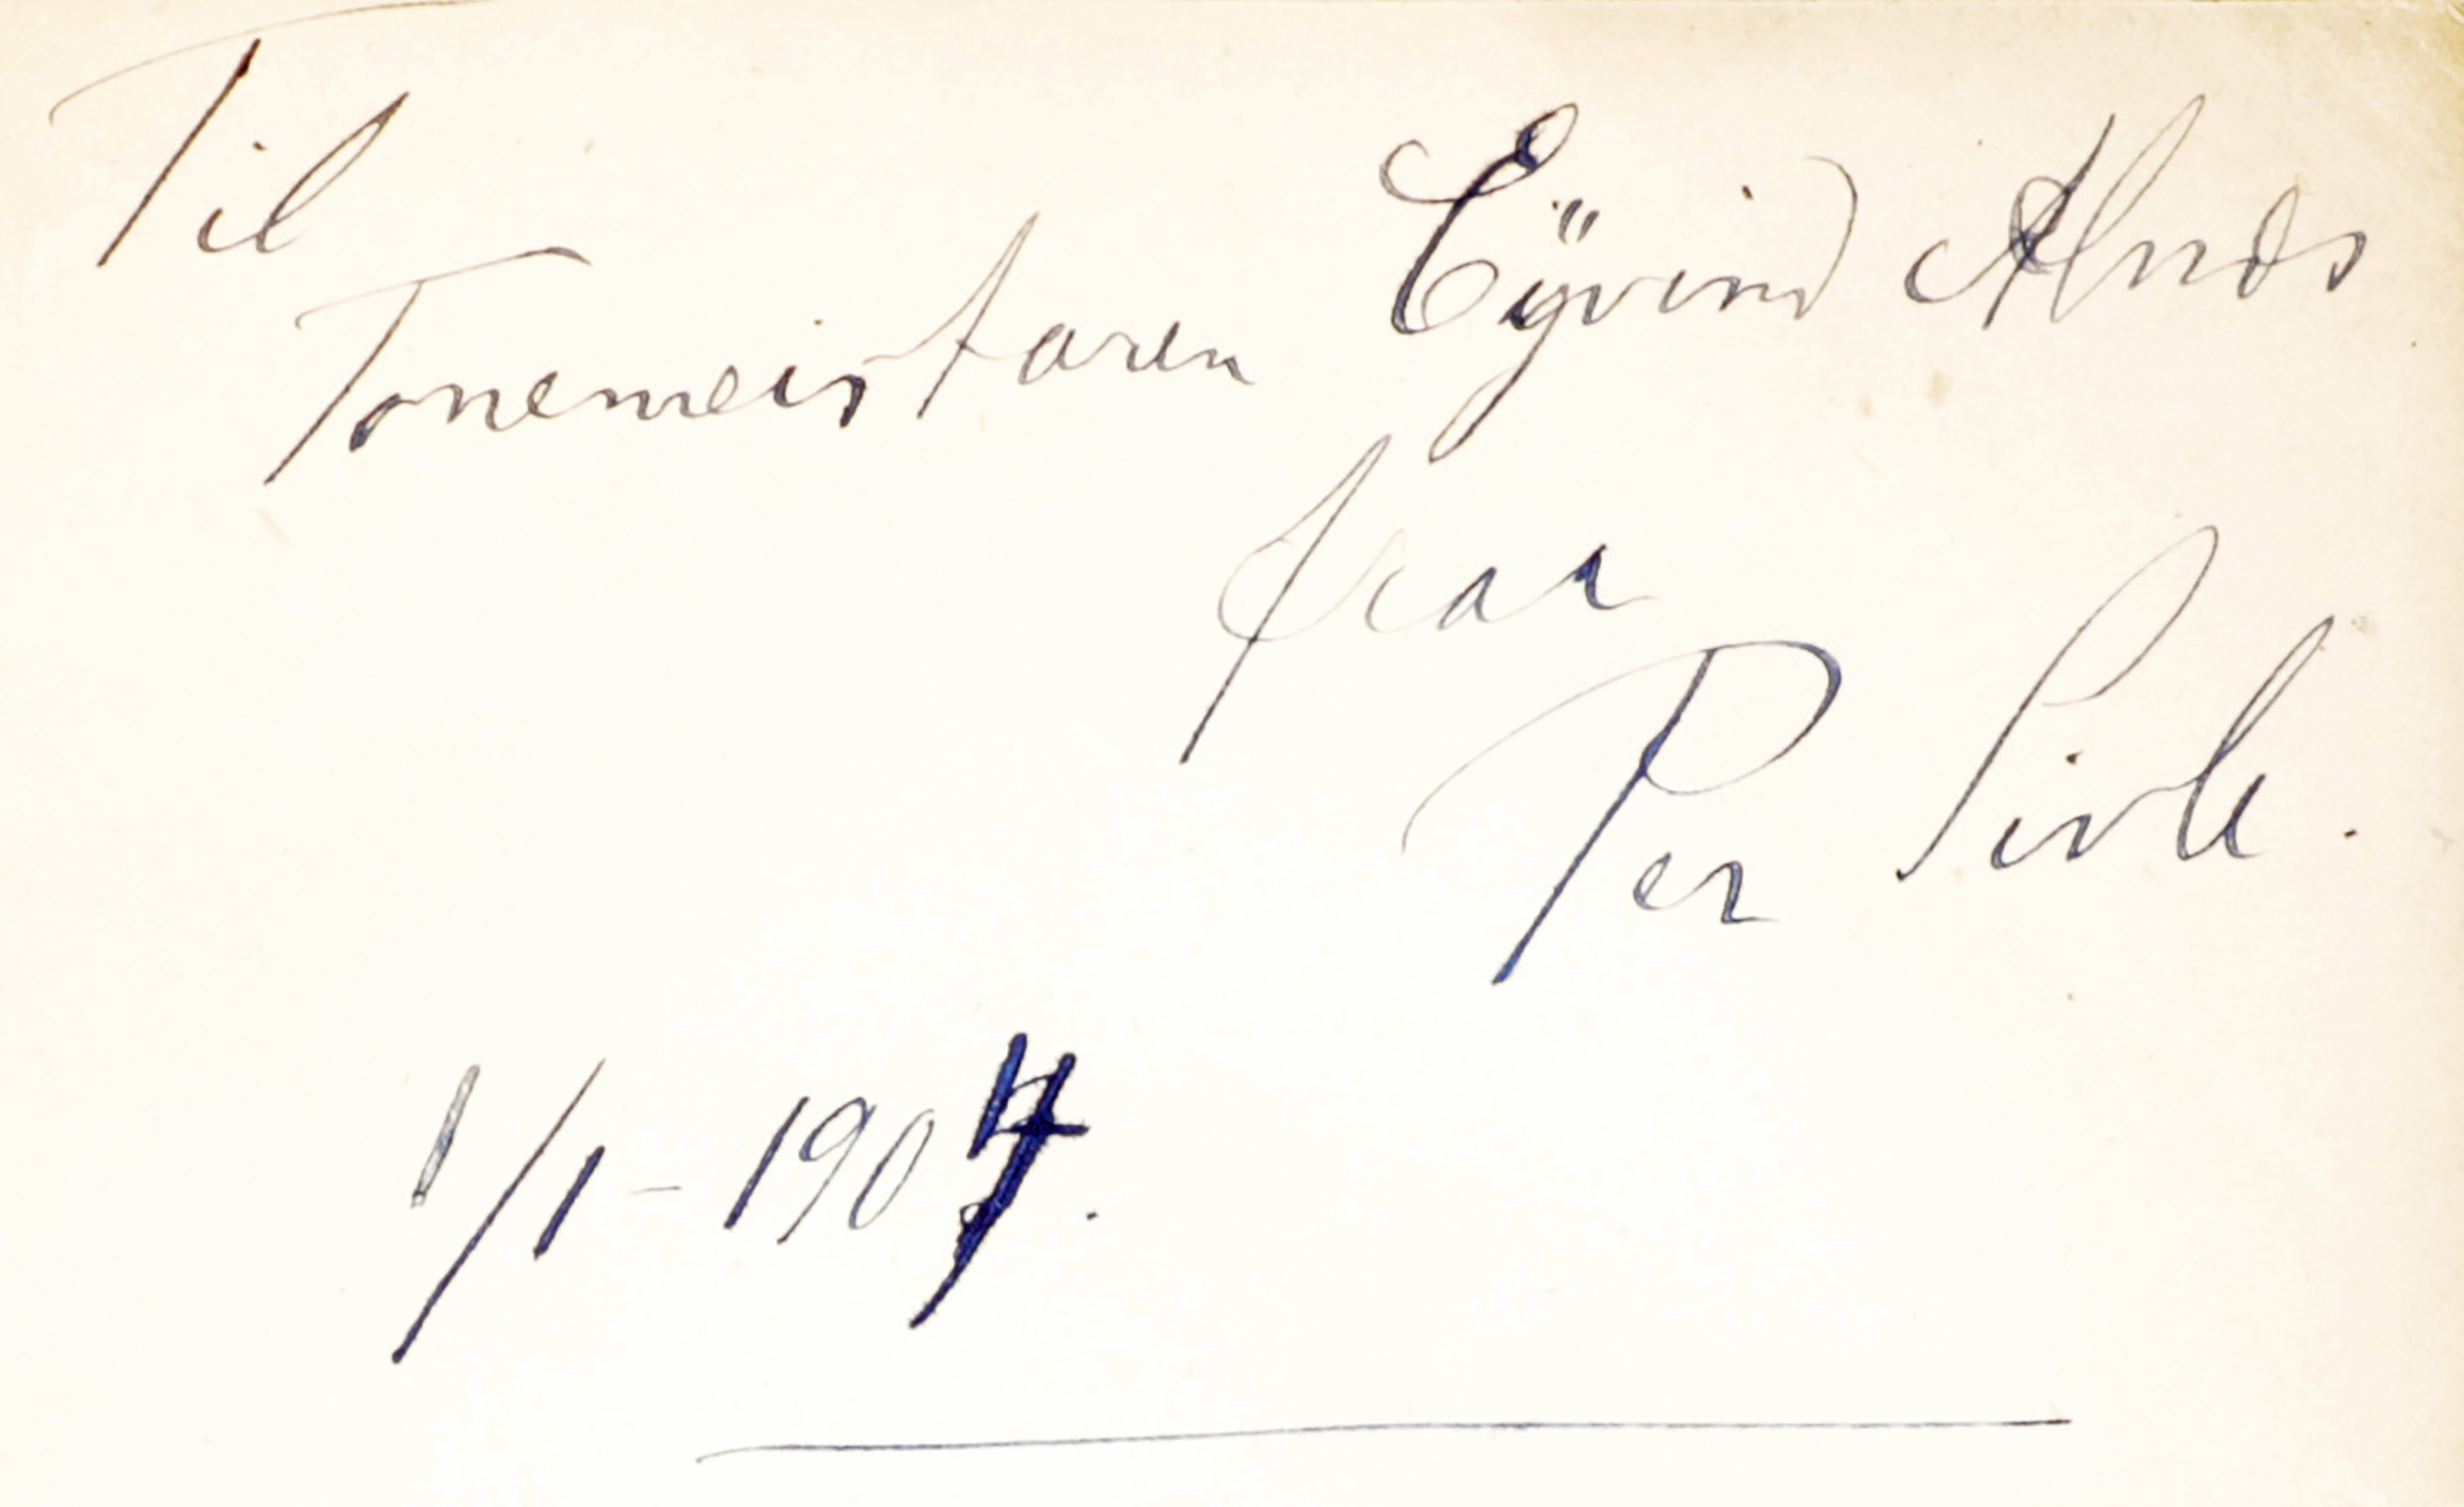 Til
Tonemeistaren Eÿvind Alnæs
fraa
Per Sivle.
1/1-1904.